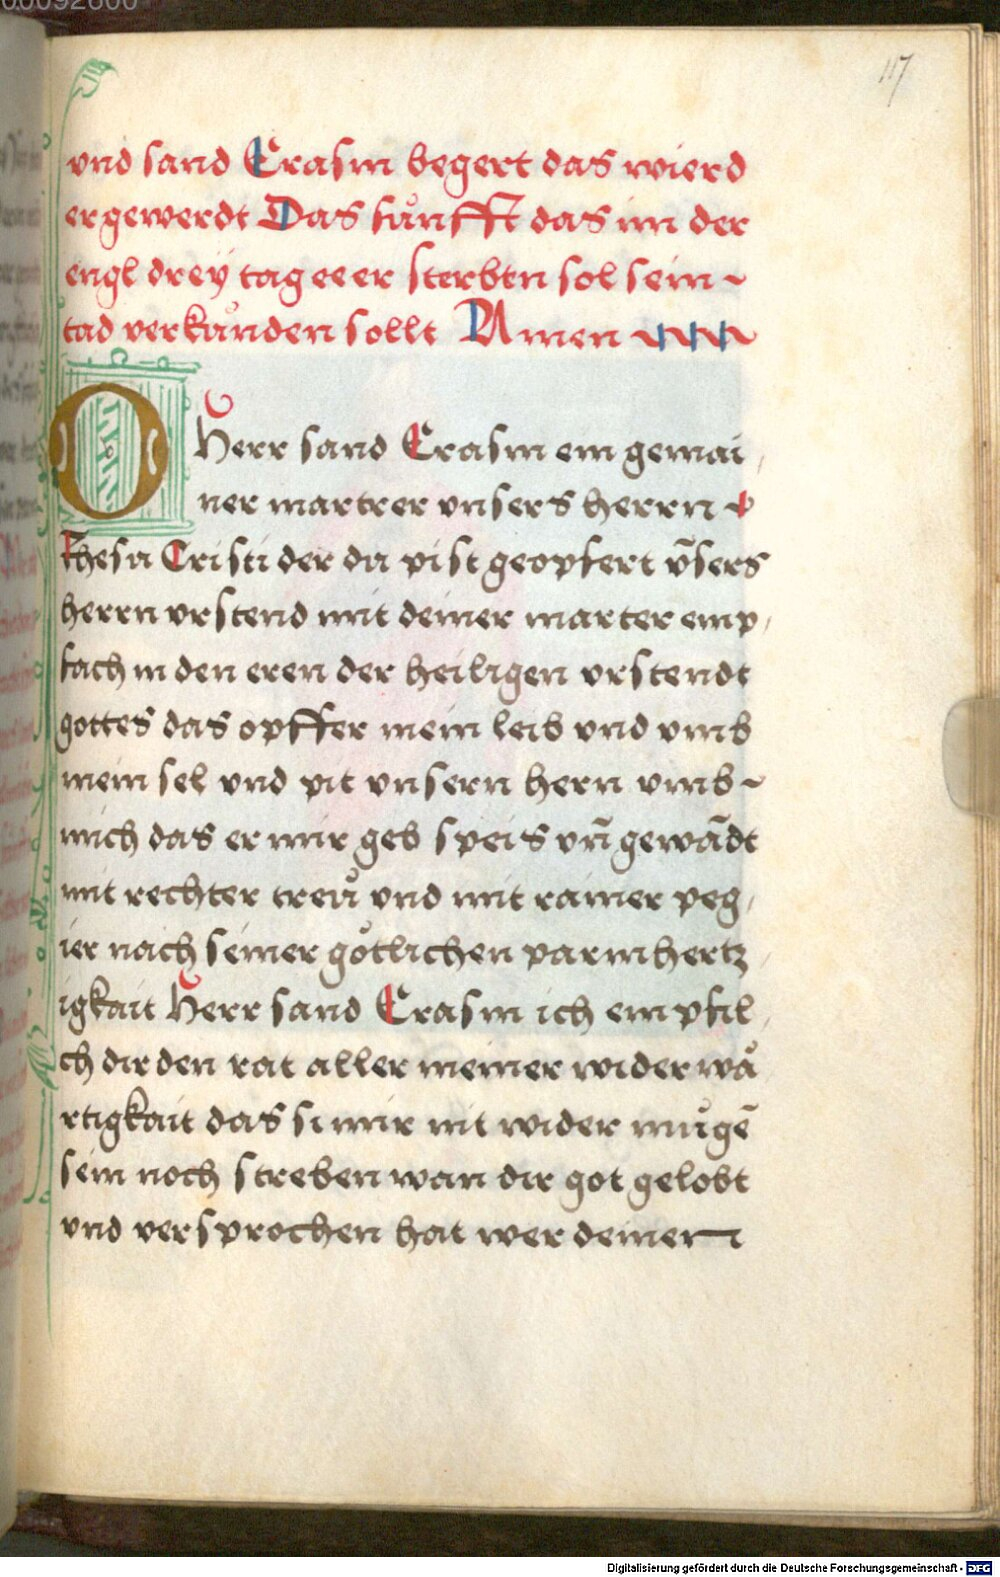 00092600
117
vnd sand Erasm begert das wierd
er gewerdt Das fu̇nfft das im der
engl dreÿ tag ee er sterbtn sol sein ~
tad verku̇nden sollt Amen
O Herr sand Erasm ein gemai,
ner martrer vnsers herrn
Jhesu Cristi der da pist geopfert v̄sers
herrn vrstend mit deiner marter emp,
fach in den eren der heiligen vrstendt
gottes das opffer mein leib vnd vmb
mein sel vnd pit vnsern hern vmb ~
mich das er mir geb speis vn̄ gewādt
mit rechter treu̇ vnd mit rainer peg,
ier nach seiner gotlichen parmhertz,
igkait Herr sand Erasm ich empfil,
ch dir den rat aller meiner wider wå
rtigkait das si mir nit wider mu̇gē
sein noch streben wan dir got gelobt
vnd versprochen hat wer deiner
Digitalisierung gefördert durch die Deutsche Forschungsgemeinschaft - DFG